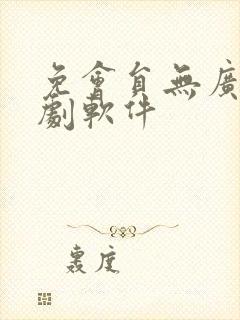 免會員無廣
劇軟件
裹度